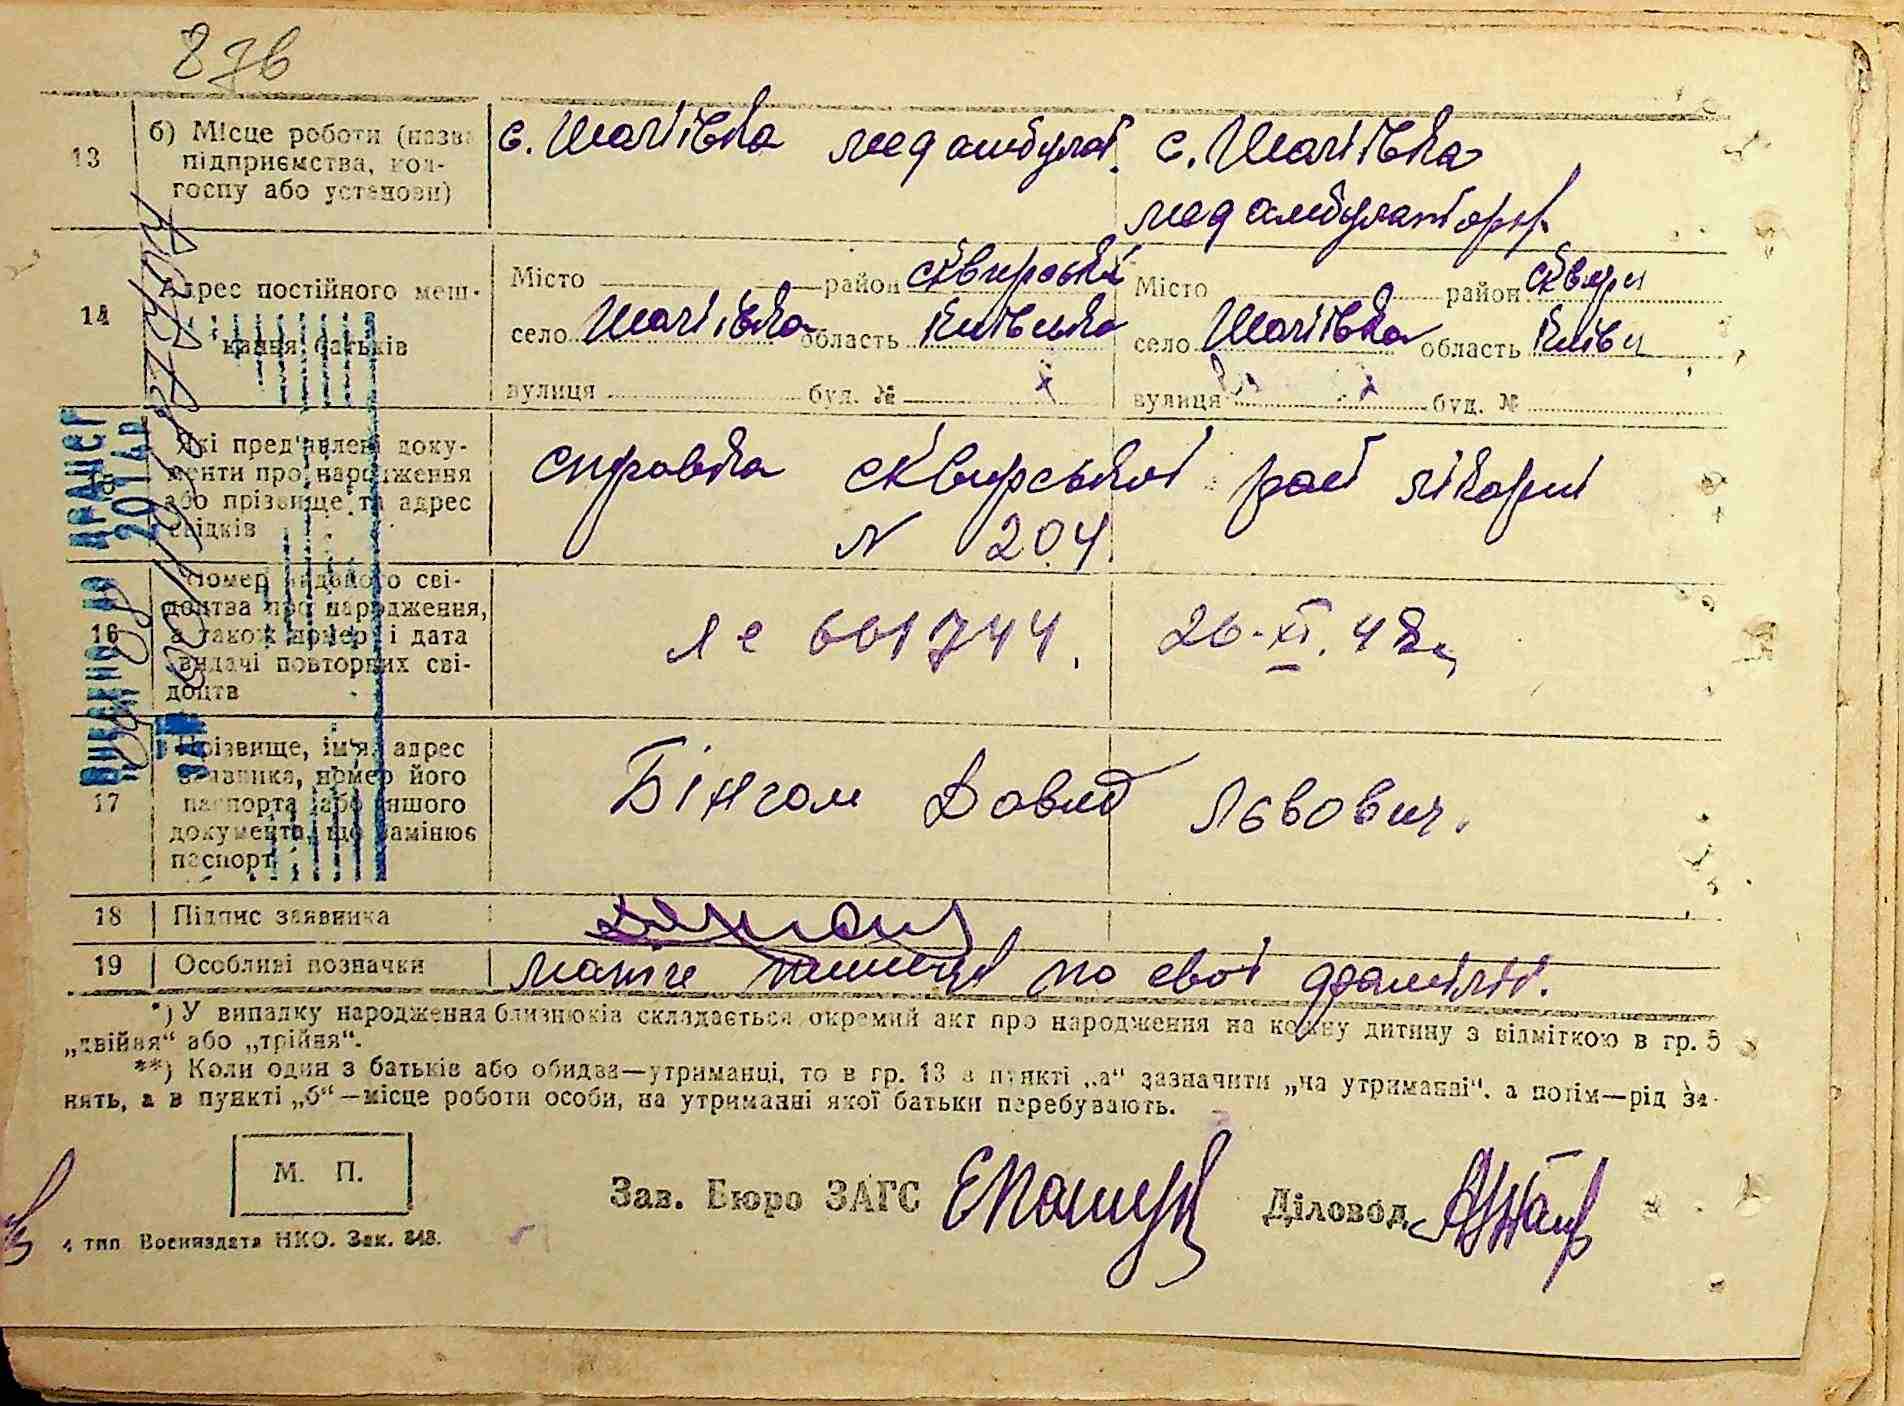 876
13 б) Місце роботи (назва підприємства, кол-госпу або установи)
с. Шаліївка мед амбулат. с. Шаліївка
мед амбулаторії
14 Адрес постійного меш-кання батьків
Місто район Сквирський Місто район Сквири
село Шаліївка область Київська село Шаліївка область Київи
вулиця буд. № вулиця буд. №
Які пред'явлені доку-
менти про народження
або прізвище та адрес
свідків
справка Сквирської рай лікарні
N 204
16 Номер виданого сві-
доцтва про народження,
а також номер і дата
видачі повторних сві-
доцтв
ЯЄ 661744. 26-XI.48
17 Прізвище, ім'я, адрес
заявника, номер його
паспорта або іншого
документа, що замінює
паспорт
Бінгом Довид Львович.
18 Підпис заявника
19 Особливі позначки
мати пишеця по свої фамілії.
*) У випадку народження близнюків складається окремий акт про народження на кожну дитину з відміткою в гр. 5
„двійня“ або „трійня“.
**) Коли один з батьків або обидва—утриманці, то в гр. 13 в пункті „а“ зазначити „на утриманні“, а потім—рід за-
нять, а в пункті „б“—місце роботи особи, на утриманні якої батьки перебувають.
М. П.
Зав. Бюро ЗАГС Діловод
4 тип Воениздата НКО. Зак. 848.